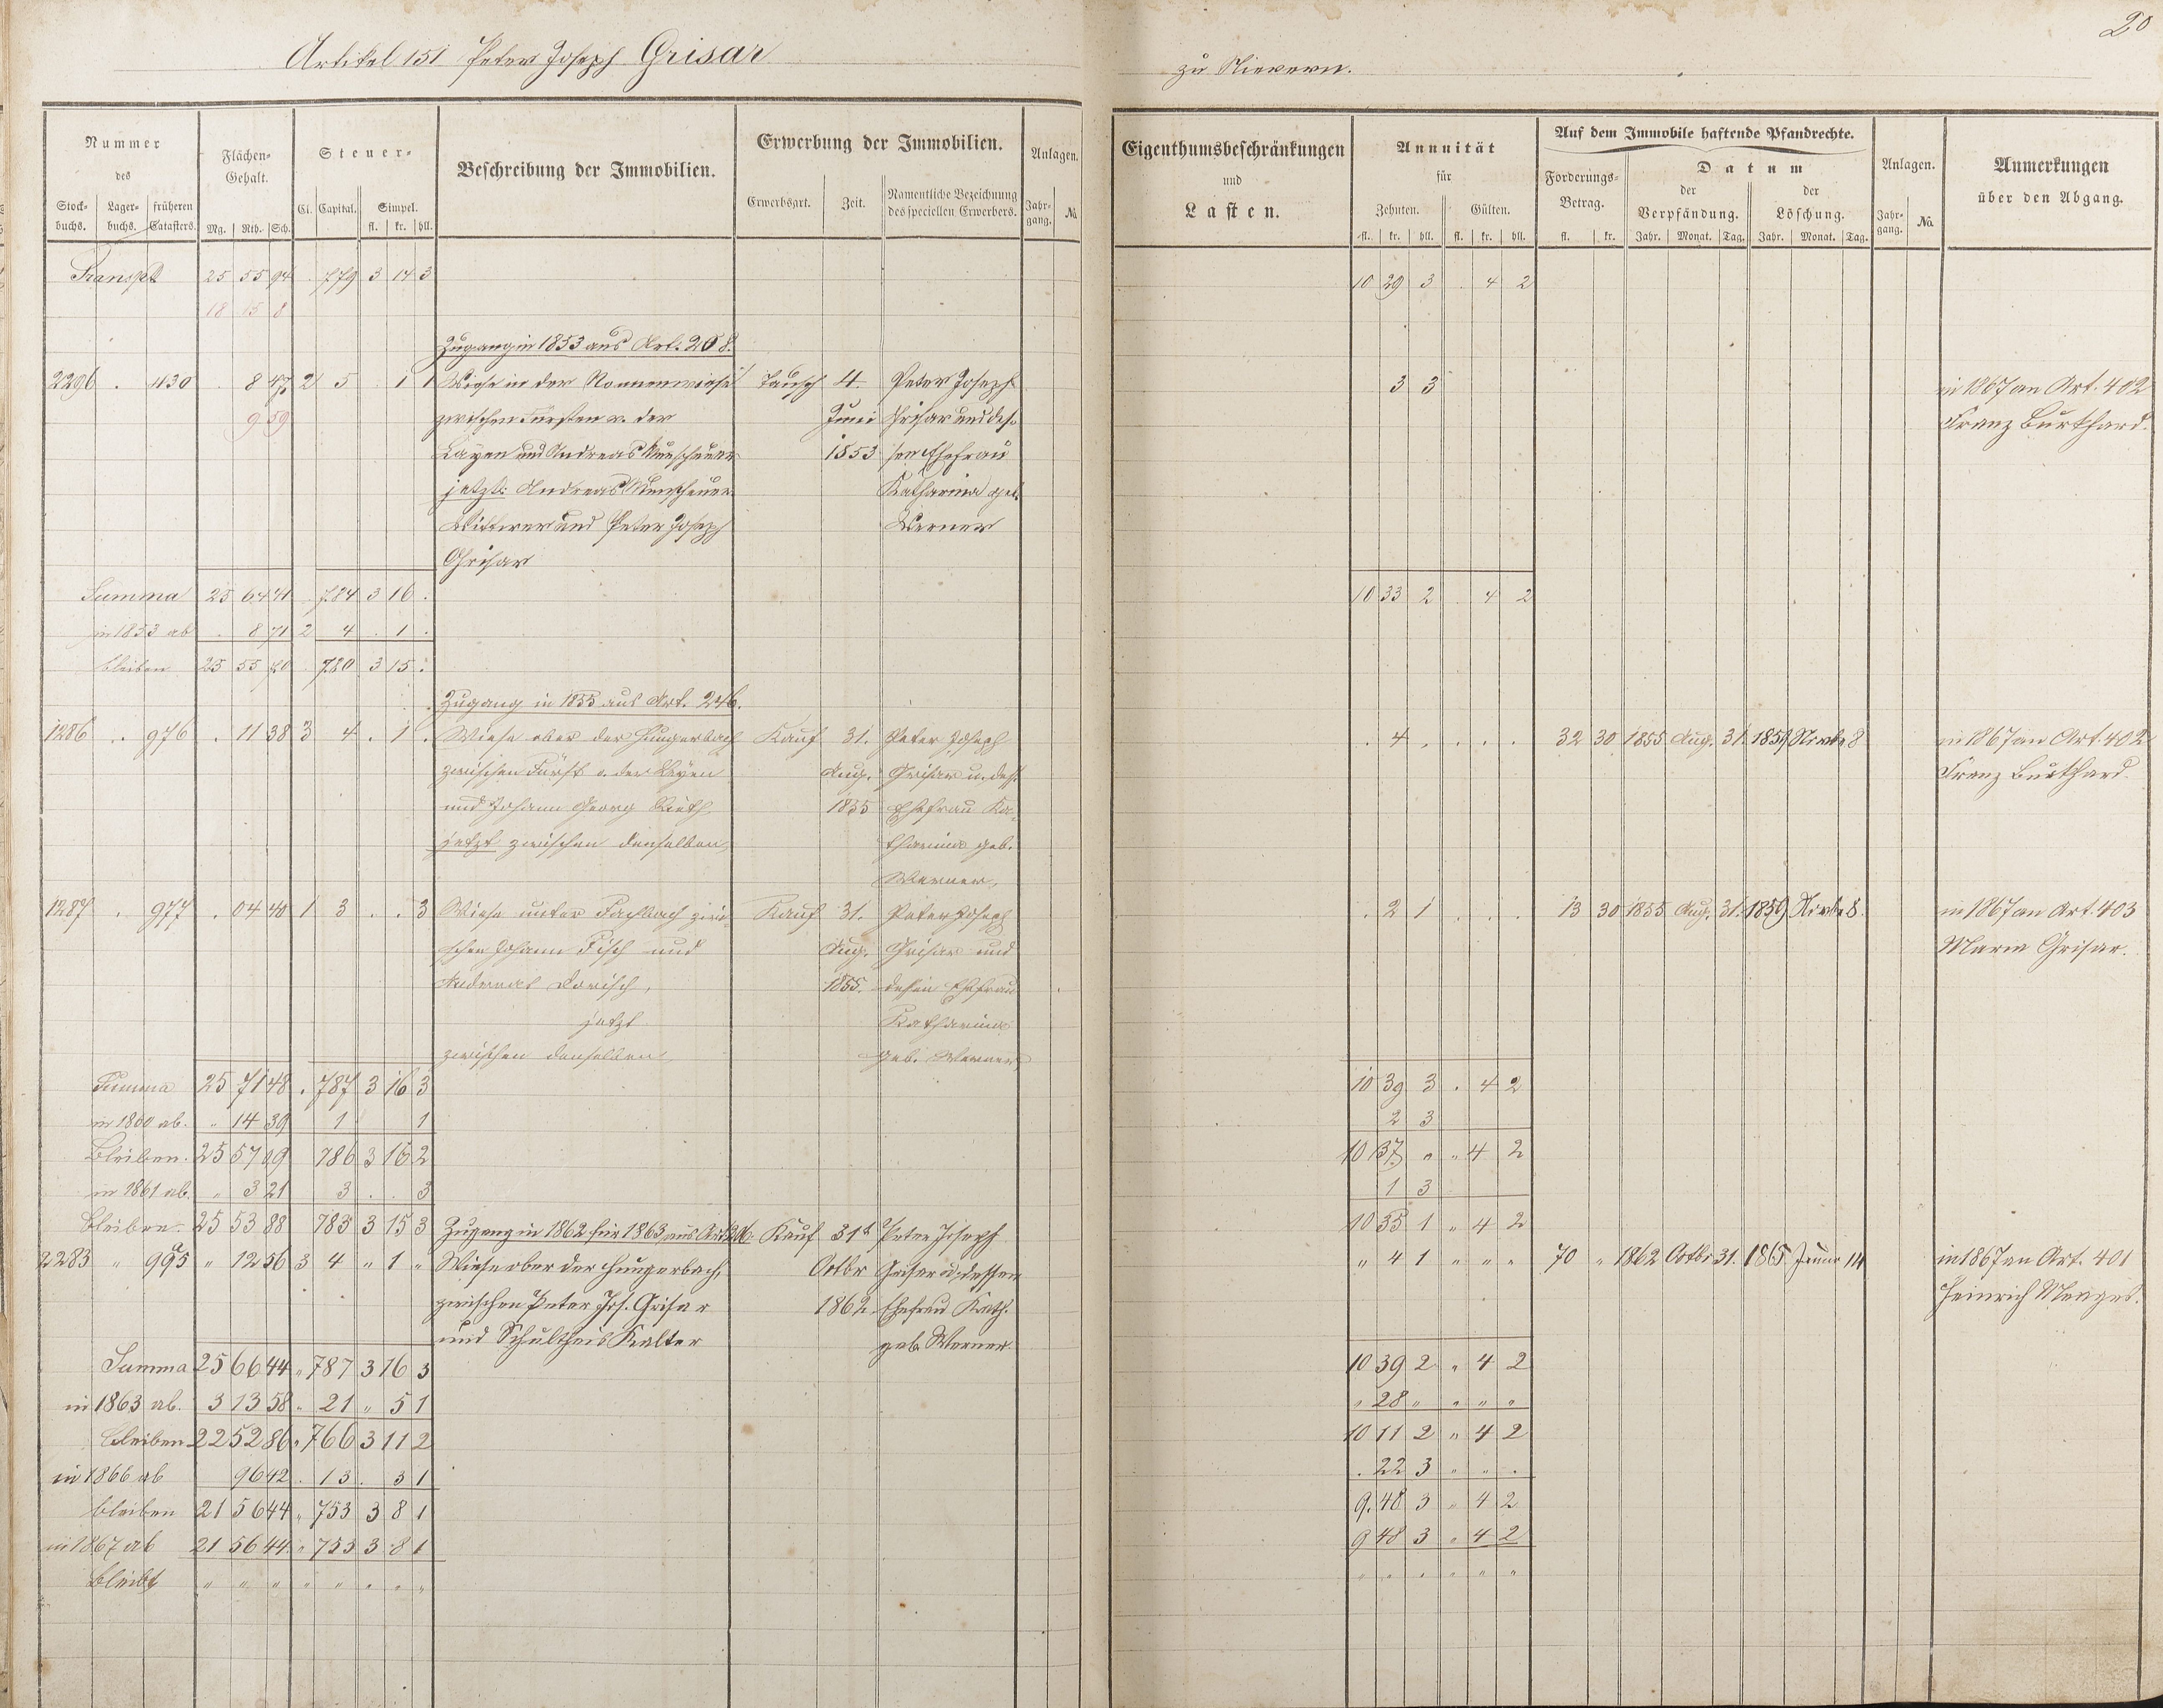 20
Artikel 151 Peter Joseph Grisar
zu Nievern.
Nummer des
Stock-buchs. Lager-buchs. früheren Catasters.
Flächen-Gehalt.
Mg. Rth. Sch.
Steuer-
Cl. Capital. Simpel.
fl. kr. hll.
Beschreibung der Immobilien.
Erwerbung der Immobilien.
Erwerbsart. Zeit. Namentliche Bezeichnung des speciellen Erwerbers.
Anlagen.
Jahr-gang. No.
Eigenthumsbeschränkungen und Lasten.
Annuität für
Zehnten. Gülten.
fl. kr. hll. fl. kr. hll.
Auf dem Immobile haftende Pfandrechte.
Forderungs-Betrag.
fl. kr.
Datum
der Verpfändung. der Löschung.
Jahr. Monat. Tag. Jahr. Monat. Tag.
Anlagen.
Jahr-gang. No.
Anmerkungen über den Abgang.
Transpt 25 55 94 . 779 3 14 3 10 29 3 . 4 2
18 15 8
Zugang in 1853 aus Art. 208.
2296 . 1130 . 8 47 2 5 . 1 1 Wiese in der Nonnenwiese Tausch 4. Peter Joseph 3 3 in 1867 an Art. 402
9 59 zwischen Fürsten v. der Juni Grisar und des- Franz Burkhard.
Layen und Andreas 1853 sen Ehefrau
jetzt: Andreas Katharina geb.
Wittwer und Peter Joseph Werner
Grisar
Summa 25 64 41 . 784 3 16 . 10 33 2 . 4 2
in 1853 ab . 8 71 2 4 . 1 .
bleiben 25 55 70 . 780 3 15 .
Zugang in 1855 aus Art. 246.
1286 . 976 . 11 38 3 4 . 1 . Wiese ober der Hungerbach Kauf 31. Peter Joseph . 4 . . . . 32 30 1855 Aug. 31. 1859 Novbr 8 in 1867 an Art. 402
zwischen Fürst v. der Leyen Aug. Grisar u. dess. Franz Burkhard.
und Johann Georg 1855 Ehefrau Ka-
jetzt zwischen denselben, tharina geb.
Werner,
1287 . 977 . 04 40 1 3 . . 3 Wiese unter Fachbach zwi- Kauf 31. Peter Joseph . 2 1 . . . 13 30 1855 Aug. 31. 1859 Novbr 8. in 1867 an Art. 403
schen Johann Fisch und Aug. Grisar und Maria Grisar.
Andreas 1855. dessen Ehefrau
jetzt Katharina
zwischen denselben geb. Werner
Summa 25 71 48 . 787 3 16 3 10 39 3 . 4 2
in 1860 ab. " 14 39 1 1 2 3
Bleiben. 25 57 09 786 3 16 2 10 37 " " 4 2
in 1861 ab. " 3 21 3 . . 3 1 3
bleiben 25 53 88 783 3 15 3 Zugang in 1862 für 1863 aus Art. Kauf 31t Peter Joseph 10 35 1 " 4 2
2283 " 995a " 12 56 3 4 " 1 " Wiese ober der Hungerbach, Octbr Grisar u. dessen " 4 1 " " " 70 " 1862 Octbr 31. 1865 Januar 14 in 1867 an Art. 401
zwischen Peter Jos. Grisar 1862 Ehefrau Kath. Heinrich Menges.
und Schultheis Kalter geb. Werner.
Summa 25 66 44 " 787 3 16 3 10 39 2 " 4 2
in 1863 ab. 3 13 58 " 21 " 5 1 " 28 " " " "
bleiben 22 52 86 " 766 3 11 2 10 11 2 " 4 2
in 1866 ab 96 42 . 13 . 3 1 . 22 3 " " .
bleiben 21 56 44 " 753 3 8 1 9. 48 3 " 4 2
in 1867 ab 21 56 44 " 753 3 8 1 9 48 3 " 4 2
bleibt " " " " " " " " " " " " " "